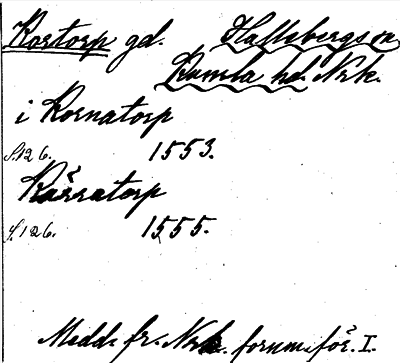 Kortorp gd. Hallsbergs sn
Kumla hd. Nrk.
i Kornatorp
S.126. 1553.
Kårratorp
S.126. 1555.
Medd. fr. Nrk. fornm.för. I.